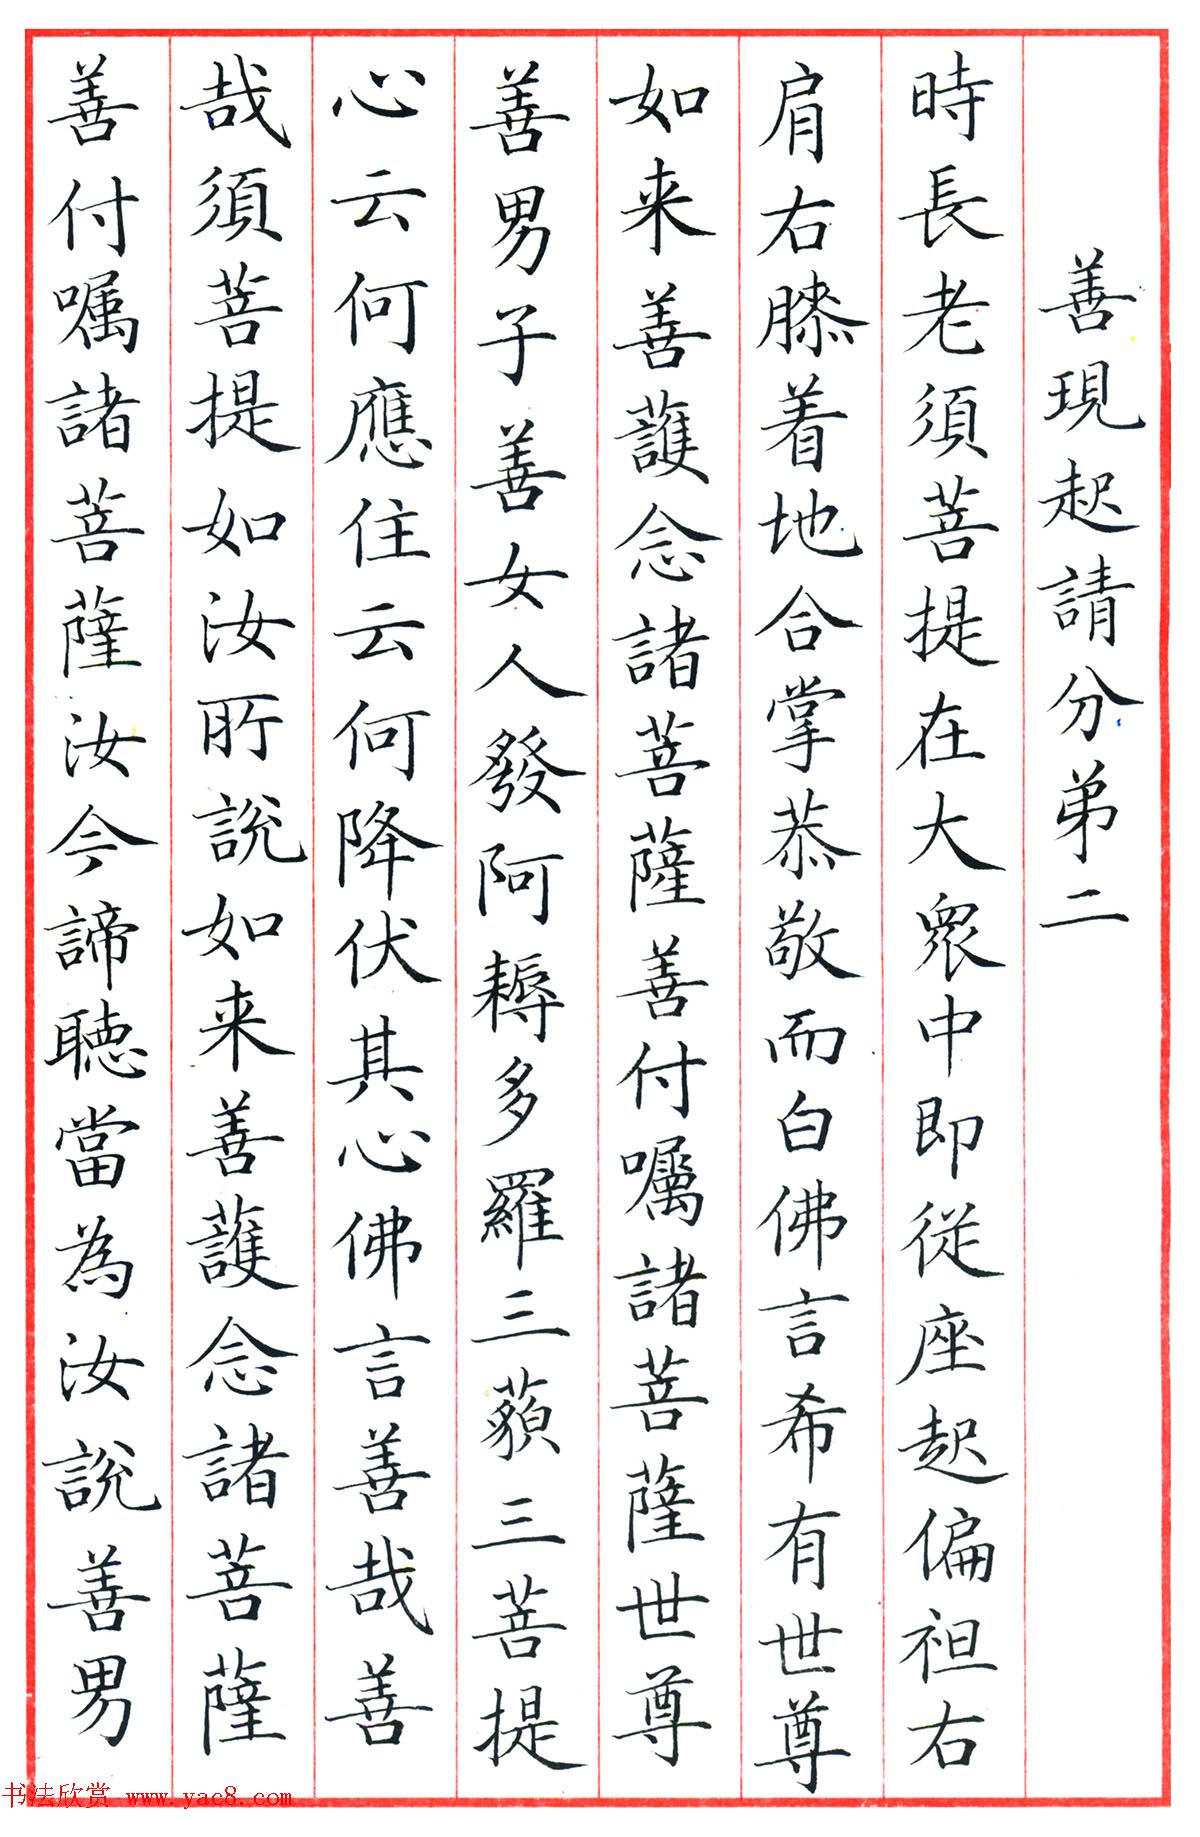 善現起請分弟二
時長老須菩提在大眾中即從座起偏袒右
肩右膝着地合掌恭敬而白佛言希有世尊
如来善護念諸菩薩善付囑諸菩薩世尊
善男子善女人發阿耨多羅三藐三菩提
心云何應住云何降伏其心佛言善哉善
哉須菩提如汝所說如来善護念諸菩薩
善付囑諸菩薩汝今諦聽當為汝說善男
书法欣赏 www.yac8.com